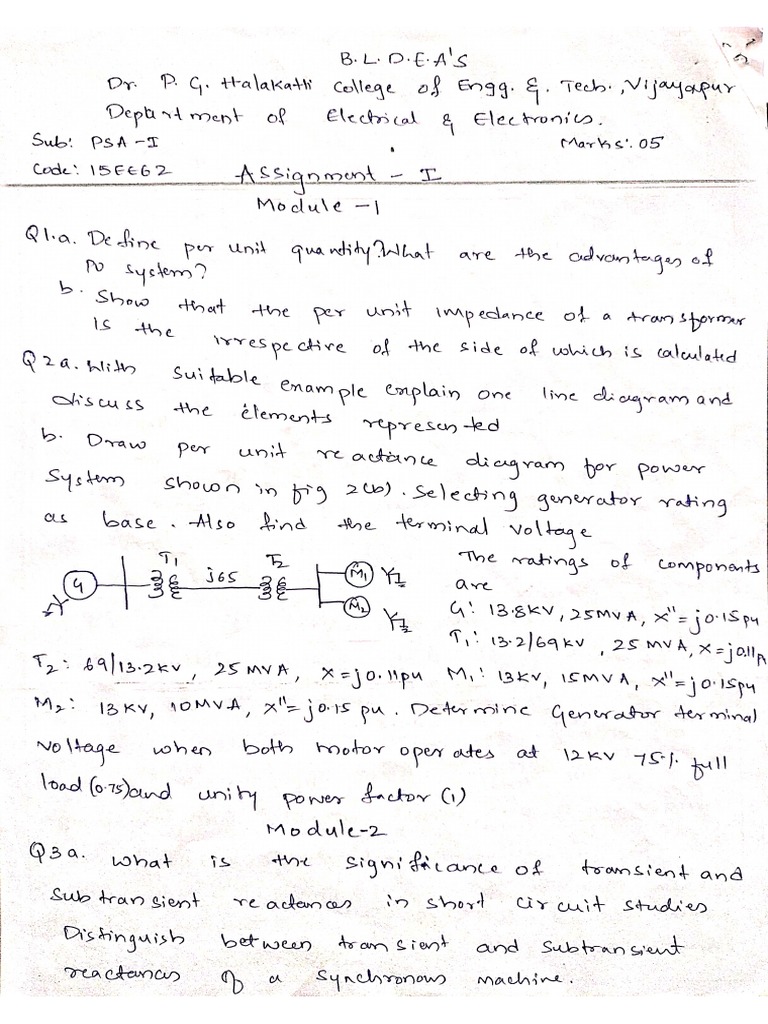 B.L.D.E.A'S
Dr. P. G. Halakatti College of Engg. & Tech., Vijayapur
Department of Electrical & Electronics.
Sub: PSA-I Marks: 05
Code: 15EE62 Assignment - I
Module -1
Q1.a. Define per unit quantity? What are the advantages of
PU system?
b. Show that the per unit impedance of a transformer
is the irrespective of the side of which is calculated
Q2a. With suitable example explain one line diagram and
discuss the elements represented
b. Draw per unit reactance diagram for power
System shown in fig 2(b). Selecting generator rating
as base. Also find the terminal voltage
The ratings of components
are
G T1 j65 T2 M1 M2
G: 13.8KV, 25MVA, X"=j0.15pu
T1: 13.2/69KV, 25 MVA, X=j0.11p
T2: 69/13.2KV, 25 MVA, X=j0.11pu M1: 13KV, 15MVA, X"=j0.15pu
M2: 13KV, 10MVA, X"=j0.15 pu. Determine Generator terminal
Voltage when both motor operates at 12KV 75% full
load (0.75) and unity power factor (1)
Module-2
Q3a. What is the significance of transient and
Subtransient reactances in short circuit studies
Distinguish between transient and subtransient
reactances of a synchronous machine.